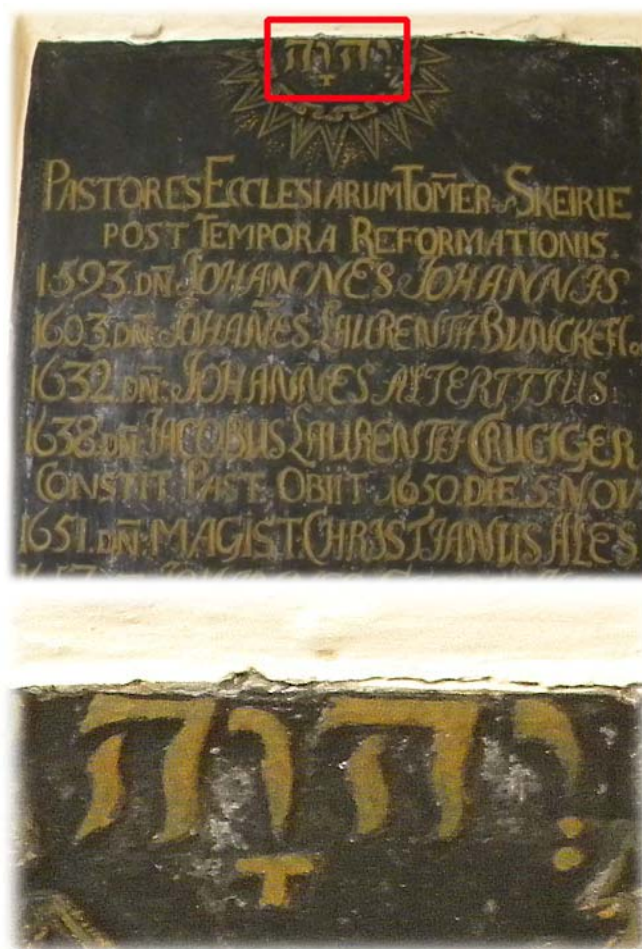 יְהוָה
PASTORES ECCLESIARUM TOM̄ER SKEIRIE
POST TEMPORA REFORMATIONIS.
1593.DN̄.JOHANNES JOHANNIS.
1603.DN̄:JOHAN̄ES LAURENTII
1632.DN̄:JOHANNES
1638.DN̄ JACOBUS LAURENTII CRUCIGER
CONSTIT PAST OBIIT 1650.DIE.5 NOV
1651.DN̄:MAGIST:CHRISTIANUS ALES
יְהוָה